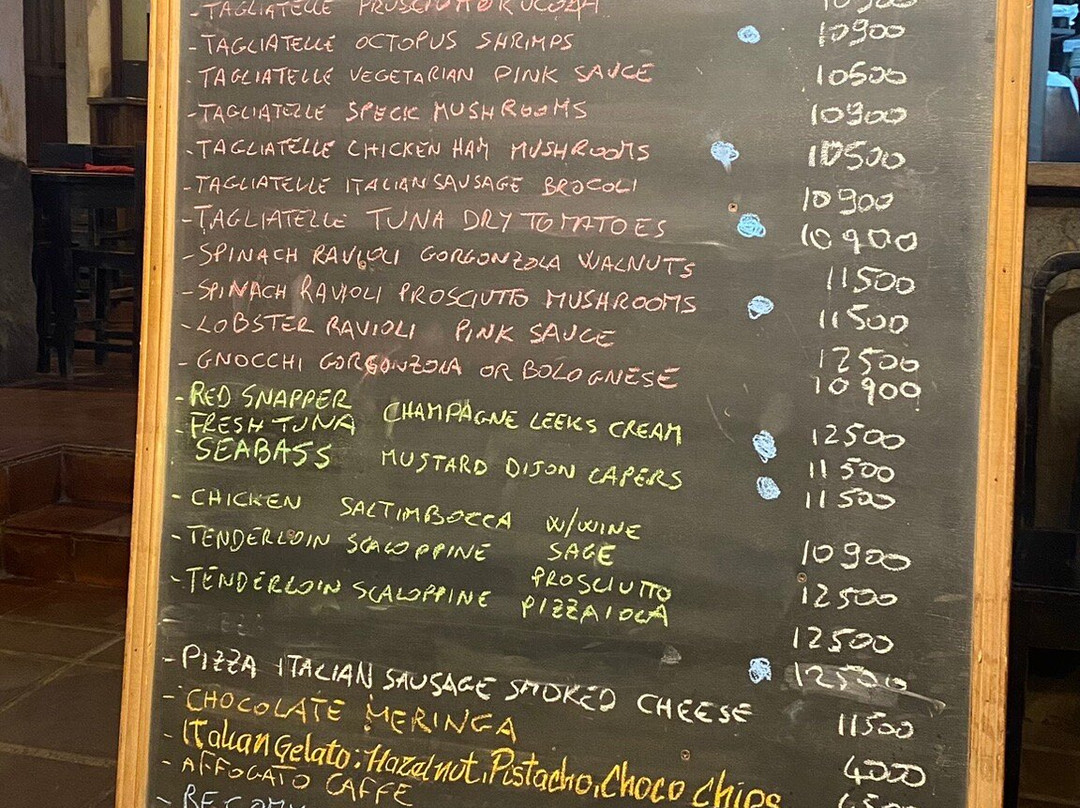 - TAGLIATELLE PROSCIUTTO RUCOLA 10900
- TAGLIATELLE OCTOPUS SHRIMPS 10900
- TAGLIATELLE VEGETARIAN PINK SAUCE 10500
- TAGLIATELLE SPECK MUSHROOMS 10900
- TAGLIATELLE CHICKEN HAM MUSHROOMS 10500
- TAGLIATELLE ITALIAN SAUSAGE BROCOLI 10900
- TAGLIATELLE TUNA DRY TOMATOES 10900
- SPINACH RAVIOLI GORGONZOLA WALNUTS 11500
- SPINACH RAVIOLI PROSCIUTTO MUSHROOMS 11500
- LOBSTER RAVIOLI PINK SAUCE 12500
- GNOCCHI GORGONZOLA OR BOLOGNESE 10900
- RED SNAPPER CHAMPAGNE LEEKS CREAM 12500
- FRESH TUNA 11500
SEABASS MUSTARD DIJON CAPERS 11500
- CHICKEN SALTIMBOCCA W/WINE SAGE 10900
- TENDERLOIN SCALOPPINE PROSCIUTTO 12500
- TENDERLOIN SCALOPPINE PIZZAIOLA 12500
12500
- PIZZA ITALIAN SAUSAGE SMOKED CHEESE 11500
- CHOCOLATE MERINGA 4000
- Italian Gelato: Hazelnut, Pistacho, Choco chips
- AFFOGATO CAFFE